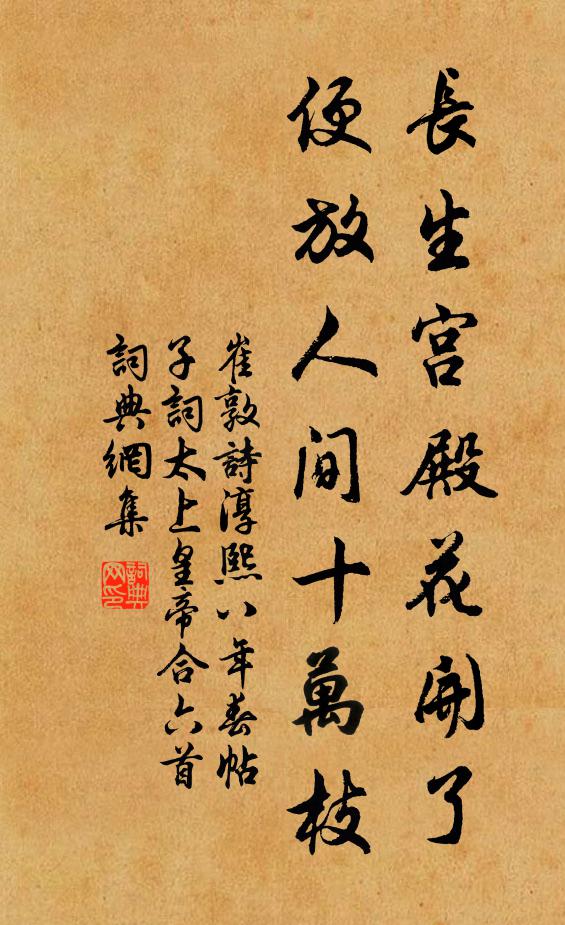 長生宮殿花開了
便放人間十萬枝
崔敦詩淳熙八年春帖
子詞太上皇帝合六首
詞典網集
詞典网印